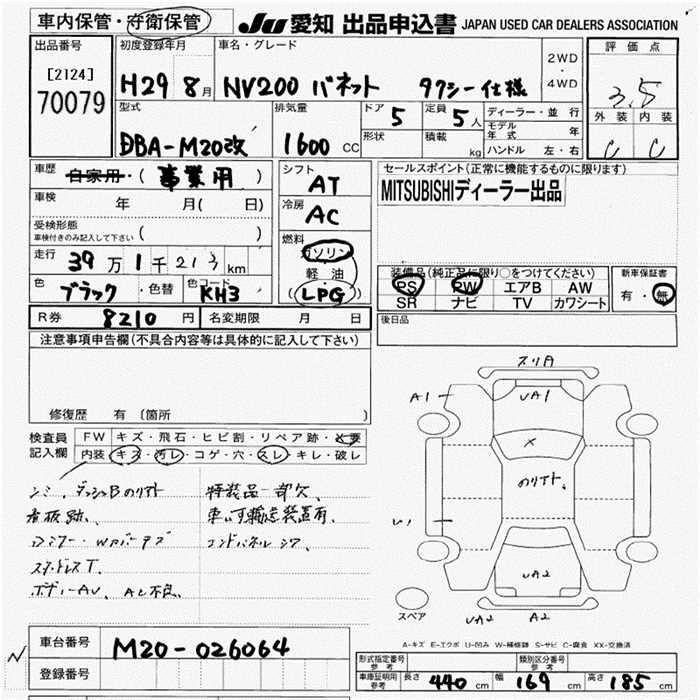 車内保管・守衛保管
JU 愛知 出品申込書 JAPAN USED CAR DEALERS ASSOCIATION
出品番号
[2124]
70079
初度登録年月
H29 8月
車名・グレード
NV200 バネット タクシー仕様
2WD
・
4WD
評価点
3.5
外装 内装
C C
型式
DBA-M20改
排気量
1600 CC
ドア 5
定員 5人
形状
積載 kg
ディーラー・並行
モデル年式 年
ハンドル 左・右
車歴 自家用・(事業用)
車検 年 月( 日)
受検形態
車検付きのみ記入して下さい ( )
走行 39万1千213km
色 ブラック ・色替 色コード KH3
シフト
AT
冷房
AC
燃料
ガソリン
軽油
(LPG)
セールスポイント(正常に機能するものに限ります)
MITSUBISHIディーラー出品
装備品(純正品に限り○をつけてください)
PS PW エアB AW
SR ナビ TV カワシート
新車保証書
有・無
R券 8210円 名変期限 月 日
後日品
注意事項申告欄(不具合内容等は具体的に記入して下さい)
修復歴 有 (箇所
検査員記入欄
FW キズ・飛石・ヒビ割・リペア跡・X要
内装 キズ・汚レ・コゲ・穴・スレ・キレ・破レ
シミ、ダッシュBのリアト
看板跡、
スタッドレスT
ボディーAU、AC不良、
特装品一部欠
車いす輸送装置有、
コンドパネルシワ、
スリ月
A1
UA1
X
のリアト、
UA2
UA2 A2
スペア
A-キズ E-エクボ U-凹み W-補修跡 S-サビ C-腐食 XX-交換済
車台番号 M20-026064
登録番号
形式指定番号 参考
類別区分番号 参考
車庫証明用 参考 長さ 440cm 幅 169cm 高さ 185cm